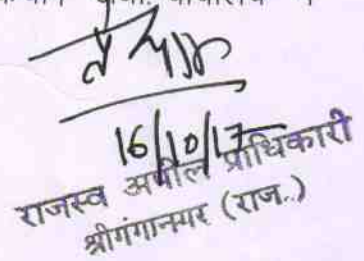 16/10/17
राजस्व अपील प्राधिकारी
श्रीगंगानगर (राज..)